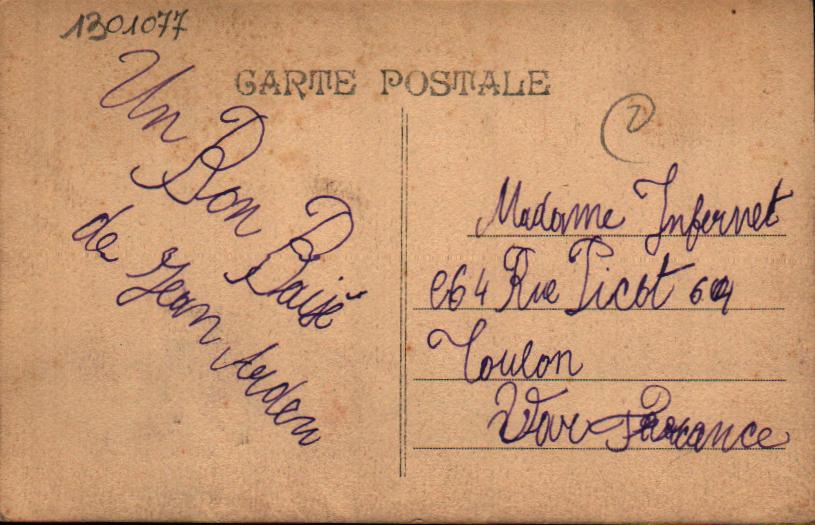 1301077
CARTE POSTALE
2
Un Bon Baisé
de Jean Arden
Madame Infernet
e64 Rue Picot 64
Toulon
Var France